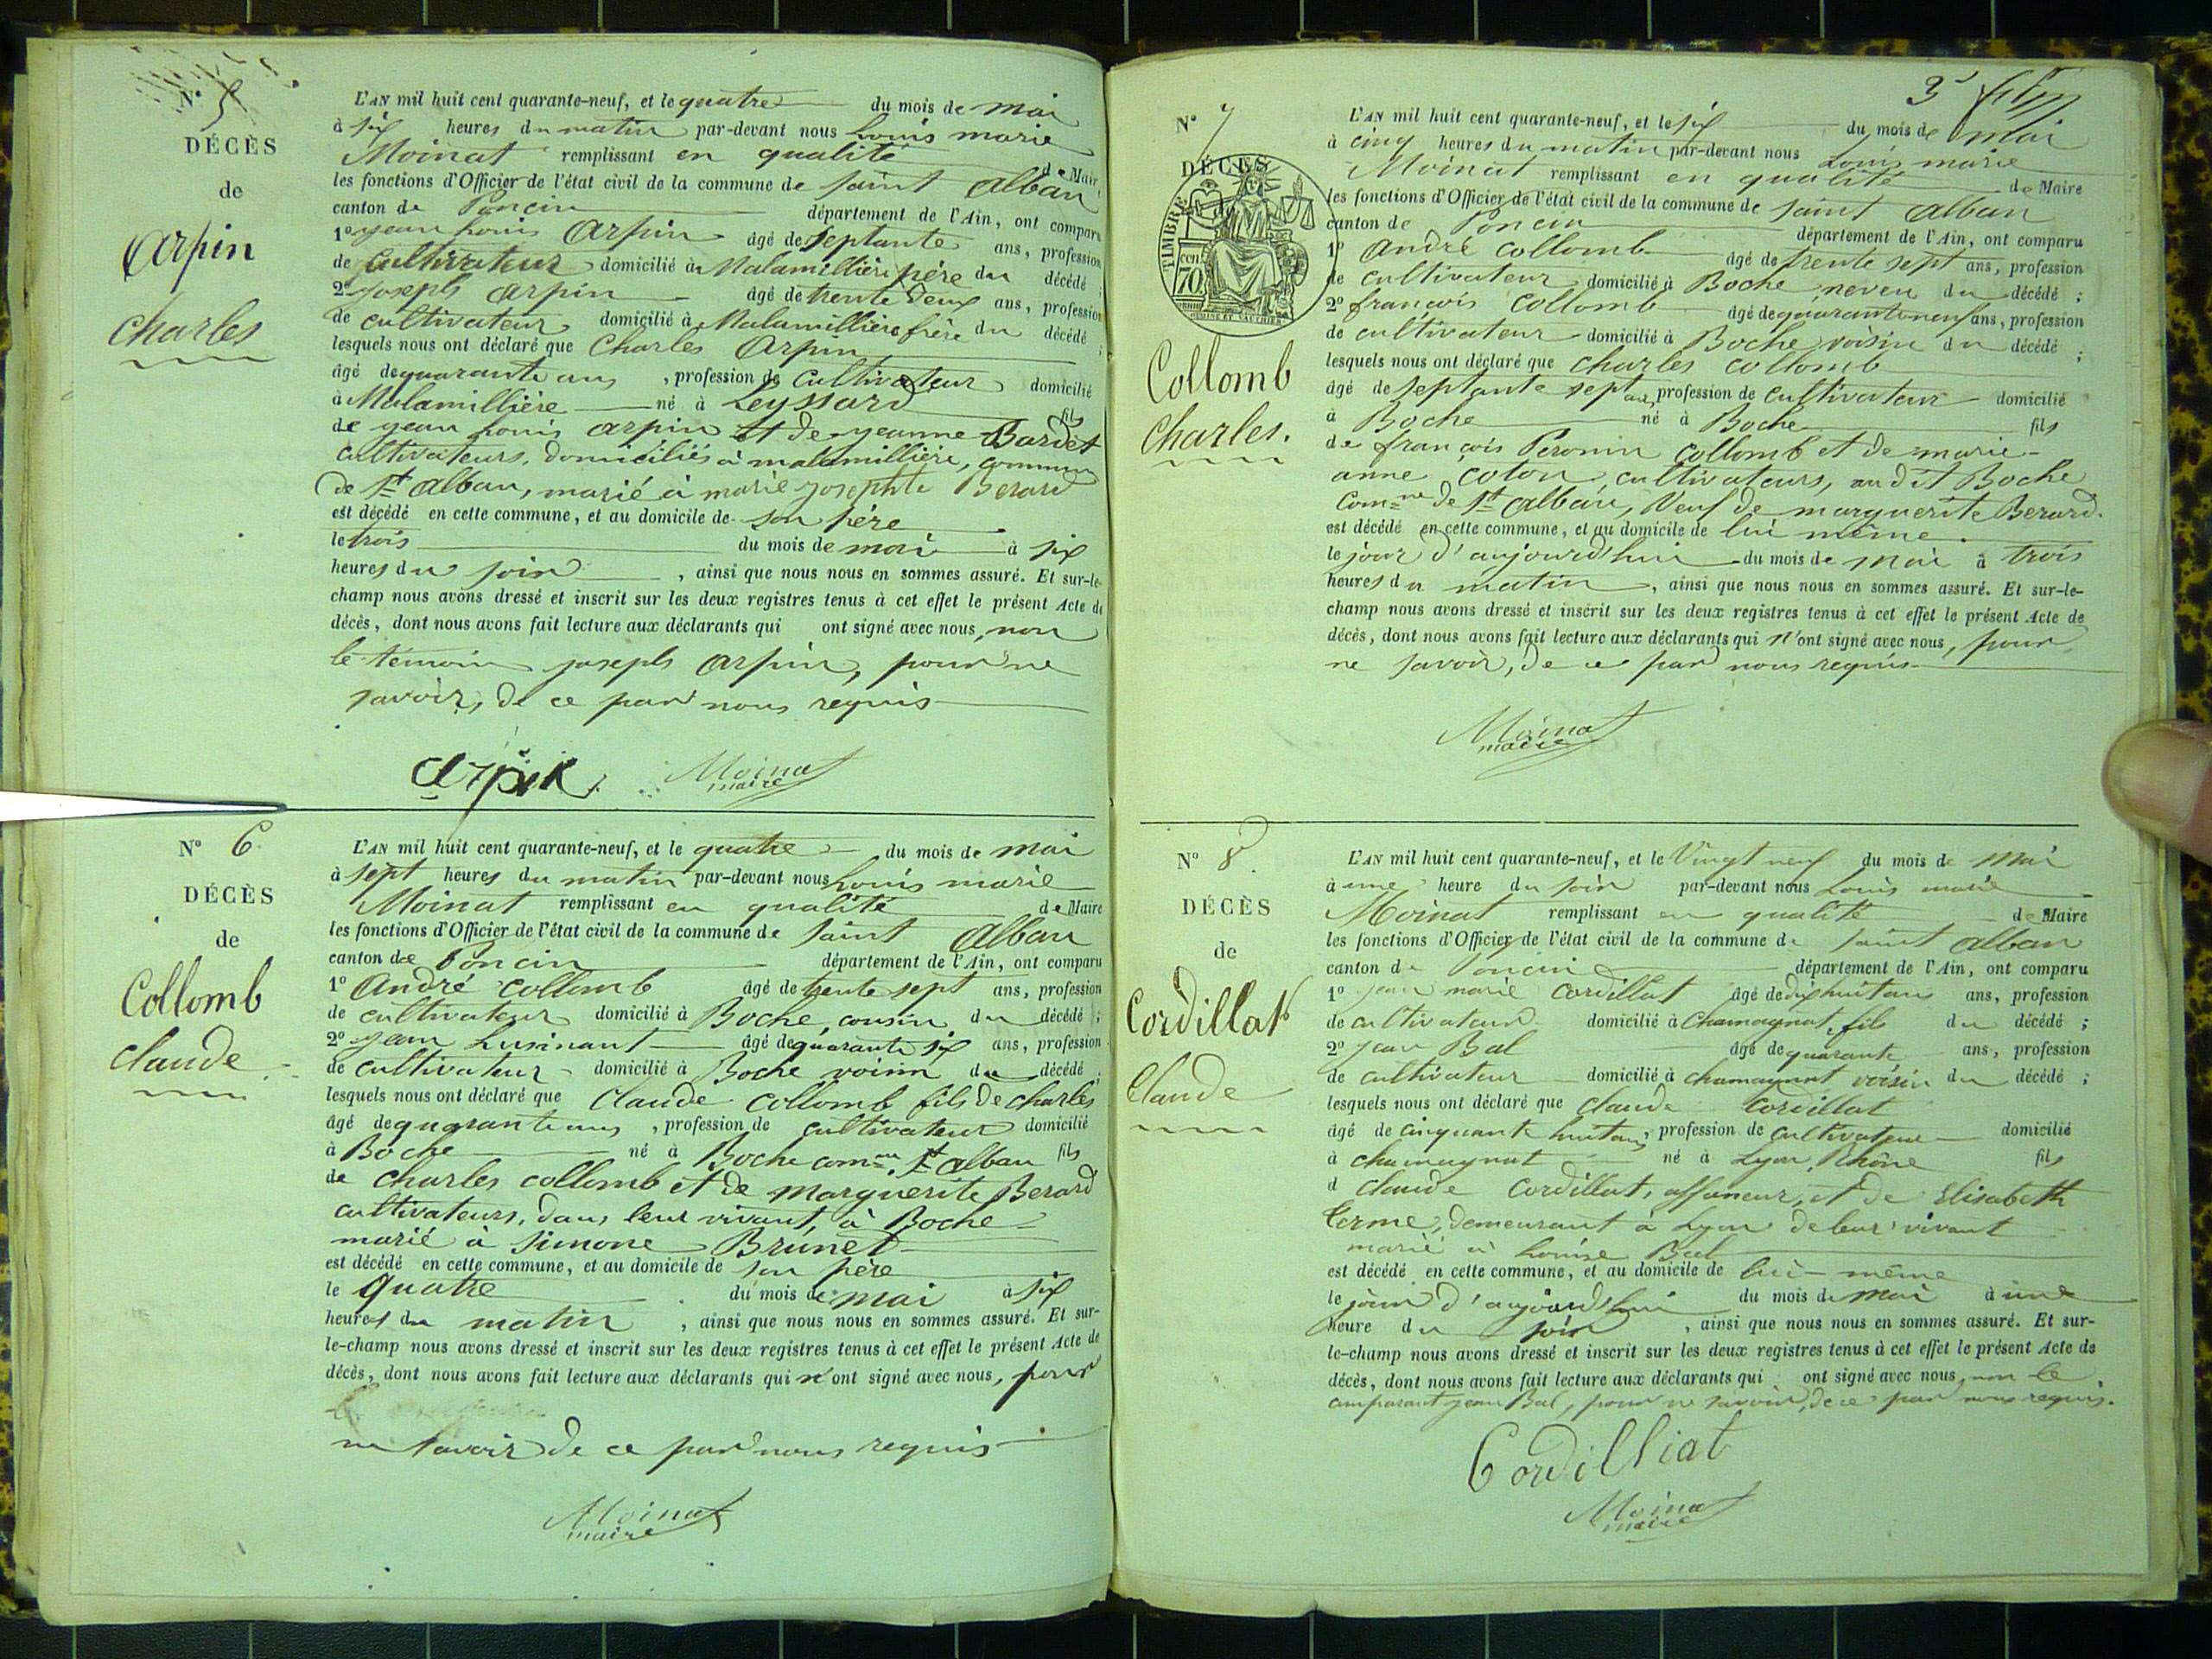 N° 5
DÉCÈS
de
Arpin
Charles
L'AN mil huit cent quarante-neuf, et le quatre du mois de mai
à six heures du matin par-devant nous Louis marie
Moinat remplissant en qualité de Maire
les fonctions d'Officier de l'état civil de la commune de saint Alban
canton de Poncin département de l'Ain, ont comparu
1° jean Louis Arpin âgé de septante ans, profession
de cultivateur domicilié à Malamillière père du décédé ;
2° joseph Arpin âgé de trente deux ans, profession
de cultivateur domicilié à Malamillière frère du décédé ;
lesquels nous ont déclaré que Charles Arpin
âgé de quarante ans, profession de cultivateur domicilié
à Malamillière né à Leyssard fils
de jean Louis Arpin et de jeanne Bardet
cultivateurs, domiciliés à malamillière, commune
de St Alban, marié à marie josephte Berard
est décédé en cette commune, et au domicile de son père
le trois du mois de mai à six
heures du soir, ainsi que nous nous en sommes assuré. Et sur-le-
champ nous avons dressé et inscrit sur les deux registres tenus à cet effet le présent Acte de
décès, dont nous avons fait lecture aux déclarants qui ont signé avec nous, non
le témoin joseph Arpin, pour ne
savoir, de ce par nous requis
arpin Moinat
maire
N° 6
DÉCÈS
de
Collomb
Claude
L'AN mil huit cent quarante-neuf, et le quatre du mois de mai
à sept heures du matin par-devant nous Louis marie
Moinat remplissant en qualité de Maire
les fonctions d'Officier de l'état civil de la commune de saint Alban
canton de Poncin département de l'Ain, ont comparu
1° André Collomb âgé de trente sept ans, profession
de cultivateur domicilié à Boche, cousin du décédé ;
2° jean Lusinant âgé de quarante six ans, profession
de cultivateur domicilié à Boche voisin du décédé ;
lesquels nous ont déclaré que Claude Collomb fils de charles
âgé de quarante ans, profession de cultivateur domicilié
à Boche né à Boche comne St Alban fils
de charles collomb et de marguerite Berard
cultivateurs, dans leur vivant, à Boche
marié à simone Brunet
est décédé en cette commune, et au domicile de son père
le quatre du mois de mai à six
heures du matin, ainsi que nous nous en sommes assuré. Et sur-
le-champ nous avons dressé et inscrit sur les deux registres tenus à cet effet le présent Acte de
décès, dont nous avons fait lecture aux déclarants qui n'ont signé avec nous, pour
ne savoir de ce par nous requis
Moinat
maire
3
N° 7
DÉCÈS
TIMBRE
cen 70
Collomb
Charles.
L'AN mil huit cent quarante-neuf, et le six du mois de mai
à cinq heures du matin par-devant nous Louis marie
Moinat remplissant en qualité de Maire
les fonctions d'Officier de l'état civil de la commune de saint Alban
canton de Poncin département de l'Ain, ont comparu
1° André Collomb âgé de trente sept ans, profession
de cultivateur domicilié à Boche neveu du décédé ;
2° françois Collomb âgé de quarante neuf ans, profession
de cultivateur domicilié à Boche voisin du décédé ;
lesquels nous ont déclaré que charles collomb
âgé de septante sept ans, profession de cultivateur domicilié
à Boche né à Boche fils
de françois Peronin Collomb et de marie-
anne Coton, cultivateurs, au dit Boche
Comne de St Alban, Veuf de marguerite Berard.
est décédé en cette commune, et au domicile de lui même.
le jour d'aujourd'hui du mois de mai à trois
heures du matin, ainsi que nous nous en sommes assuré. Et sur-le-
champ nous avons dressé et inscrit sur les deux registres tenus à cet effet le présent Acte de
décès, dont nous avons fait lecture aux déclarants qui n'ont signé avec nous, pour
ne savoir, de ce par nous requis
Moinat
maire
N° 8.
DÉCÈS
de
Cordillat
Claude
L'AN mil huit cent quarante-neuf, et le Vingt neuf du mois de mai
à une heure du soir par-devant nous Louis marie
Moinat remplissant en qualité de Maire
les fonctions d'Officier de l'état civil de la commune de saint Alban
canton de Poncin département de l'Ain, ont comparu
1° jean marie Cordillat âgé de dix huit ans ans, profession
de cultivateur domicilié à Chamagnat, fils du décédé ;
2° jean Bal âgé de quarante ans, profession
de cultivateur domicilié à chamagnat voisin du décédé ;
lesquels nous ont déclaré que claude Cordillat
âgé de cinquante huit ans, profession de cultivateur domicilié
à chamagnat né à Lyon, Rhône fils
d claude Cordillat, affaneur, et de Elisabeth
terme, demeurant à Lyon de leur vivant
marié à Louise Bal
est décédé en cette commune, et au domicile de lui-même
le jour d'aujourd'hui du mois de mai à une
heure du soir, ainsi que nous nous en sommes assuré. Et sur-
le-champ nous avons dressé et inscrit sur les deux registres tenus à cet effet le présent Acte de
décès, dont nous avons fait lecture aux déclarants qui ont signé avec nous, non le
comparant jean Bal, pour ne savoir, de ce par nous requis.
Cordilliat
Moinat
maire